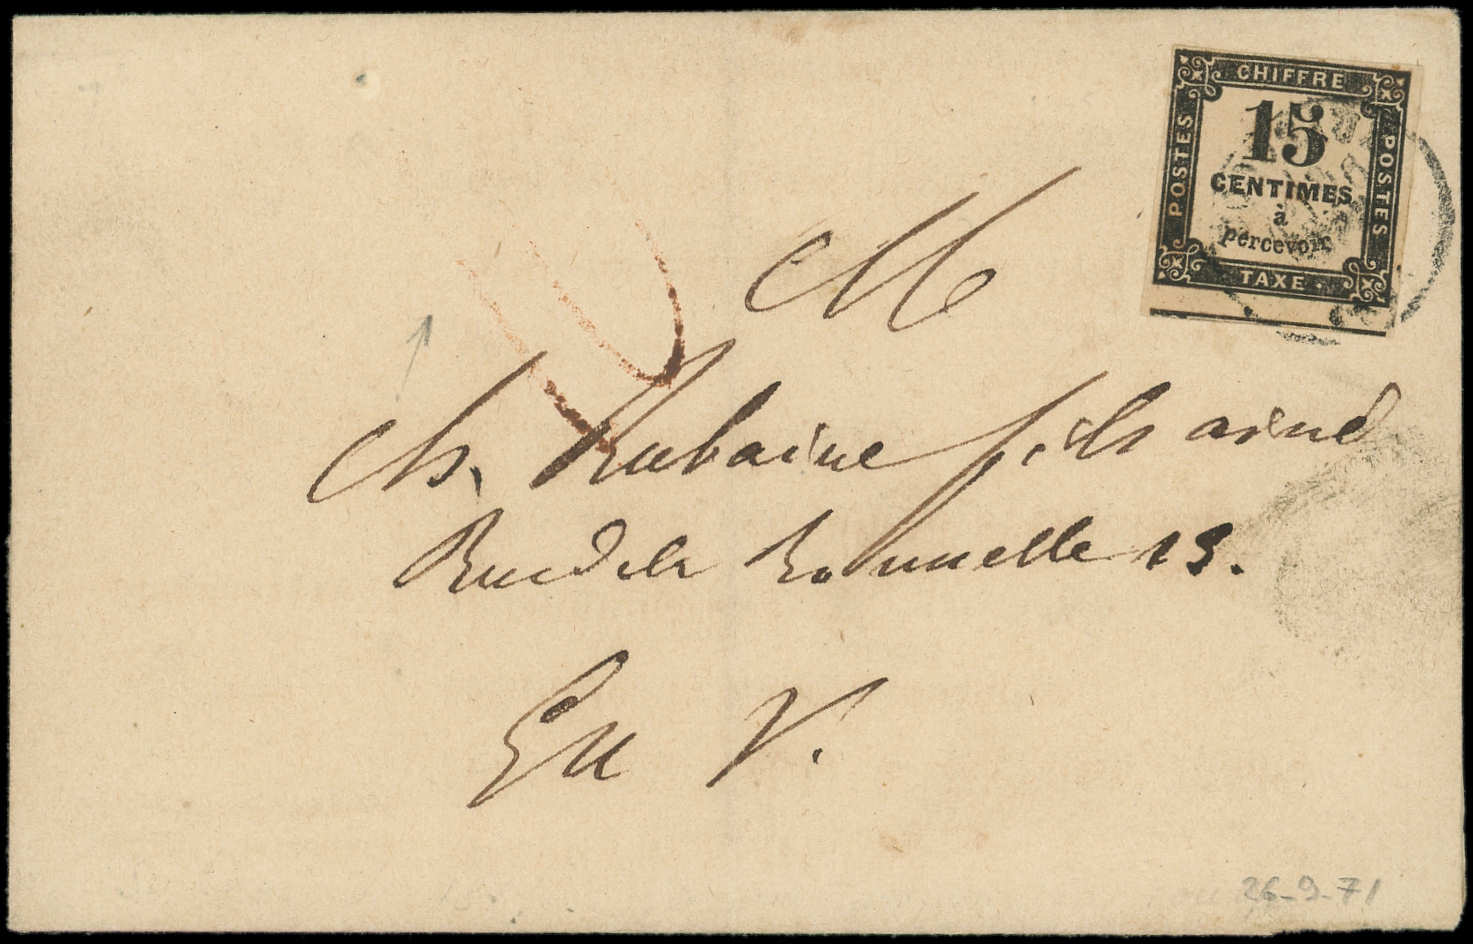 CHIFFRE
POSTES
15
CENTIMES
à
percevoir
POSTES
TAXE
M
Ch. Rubaine fils ainé
Rue de la Bonnelle 13.
En V.
26-9-71